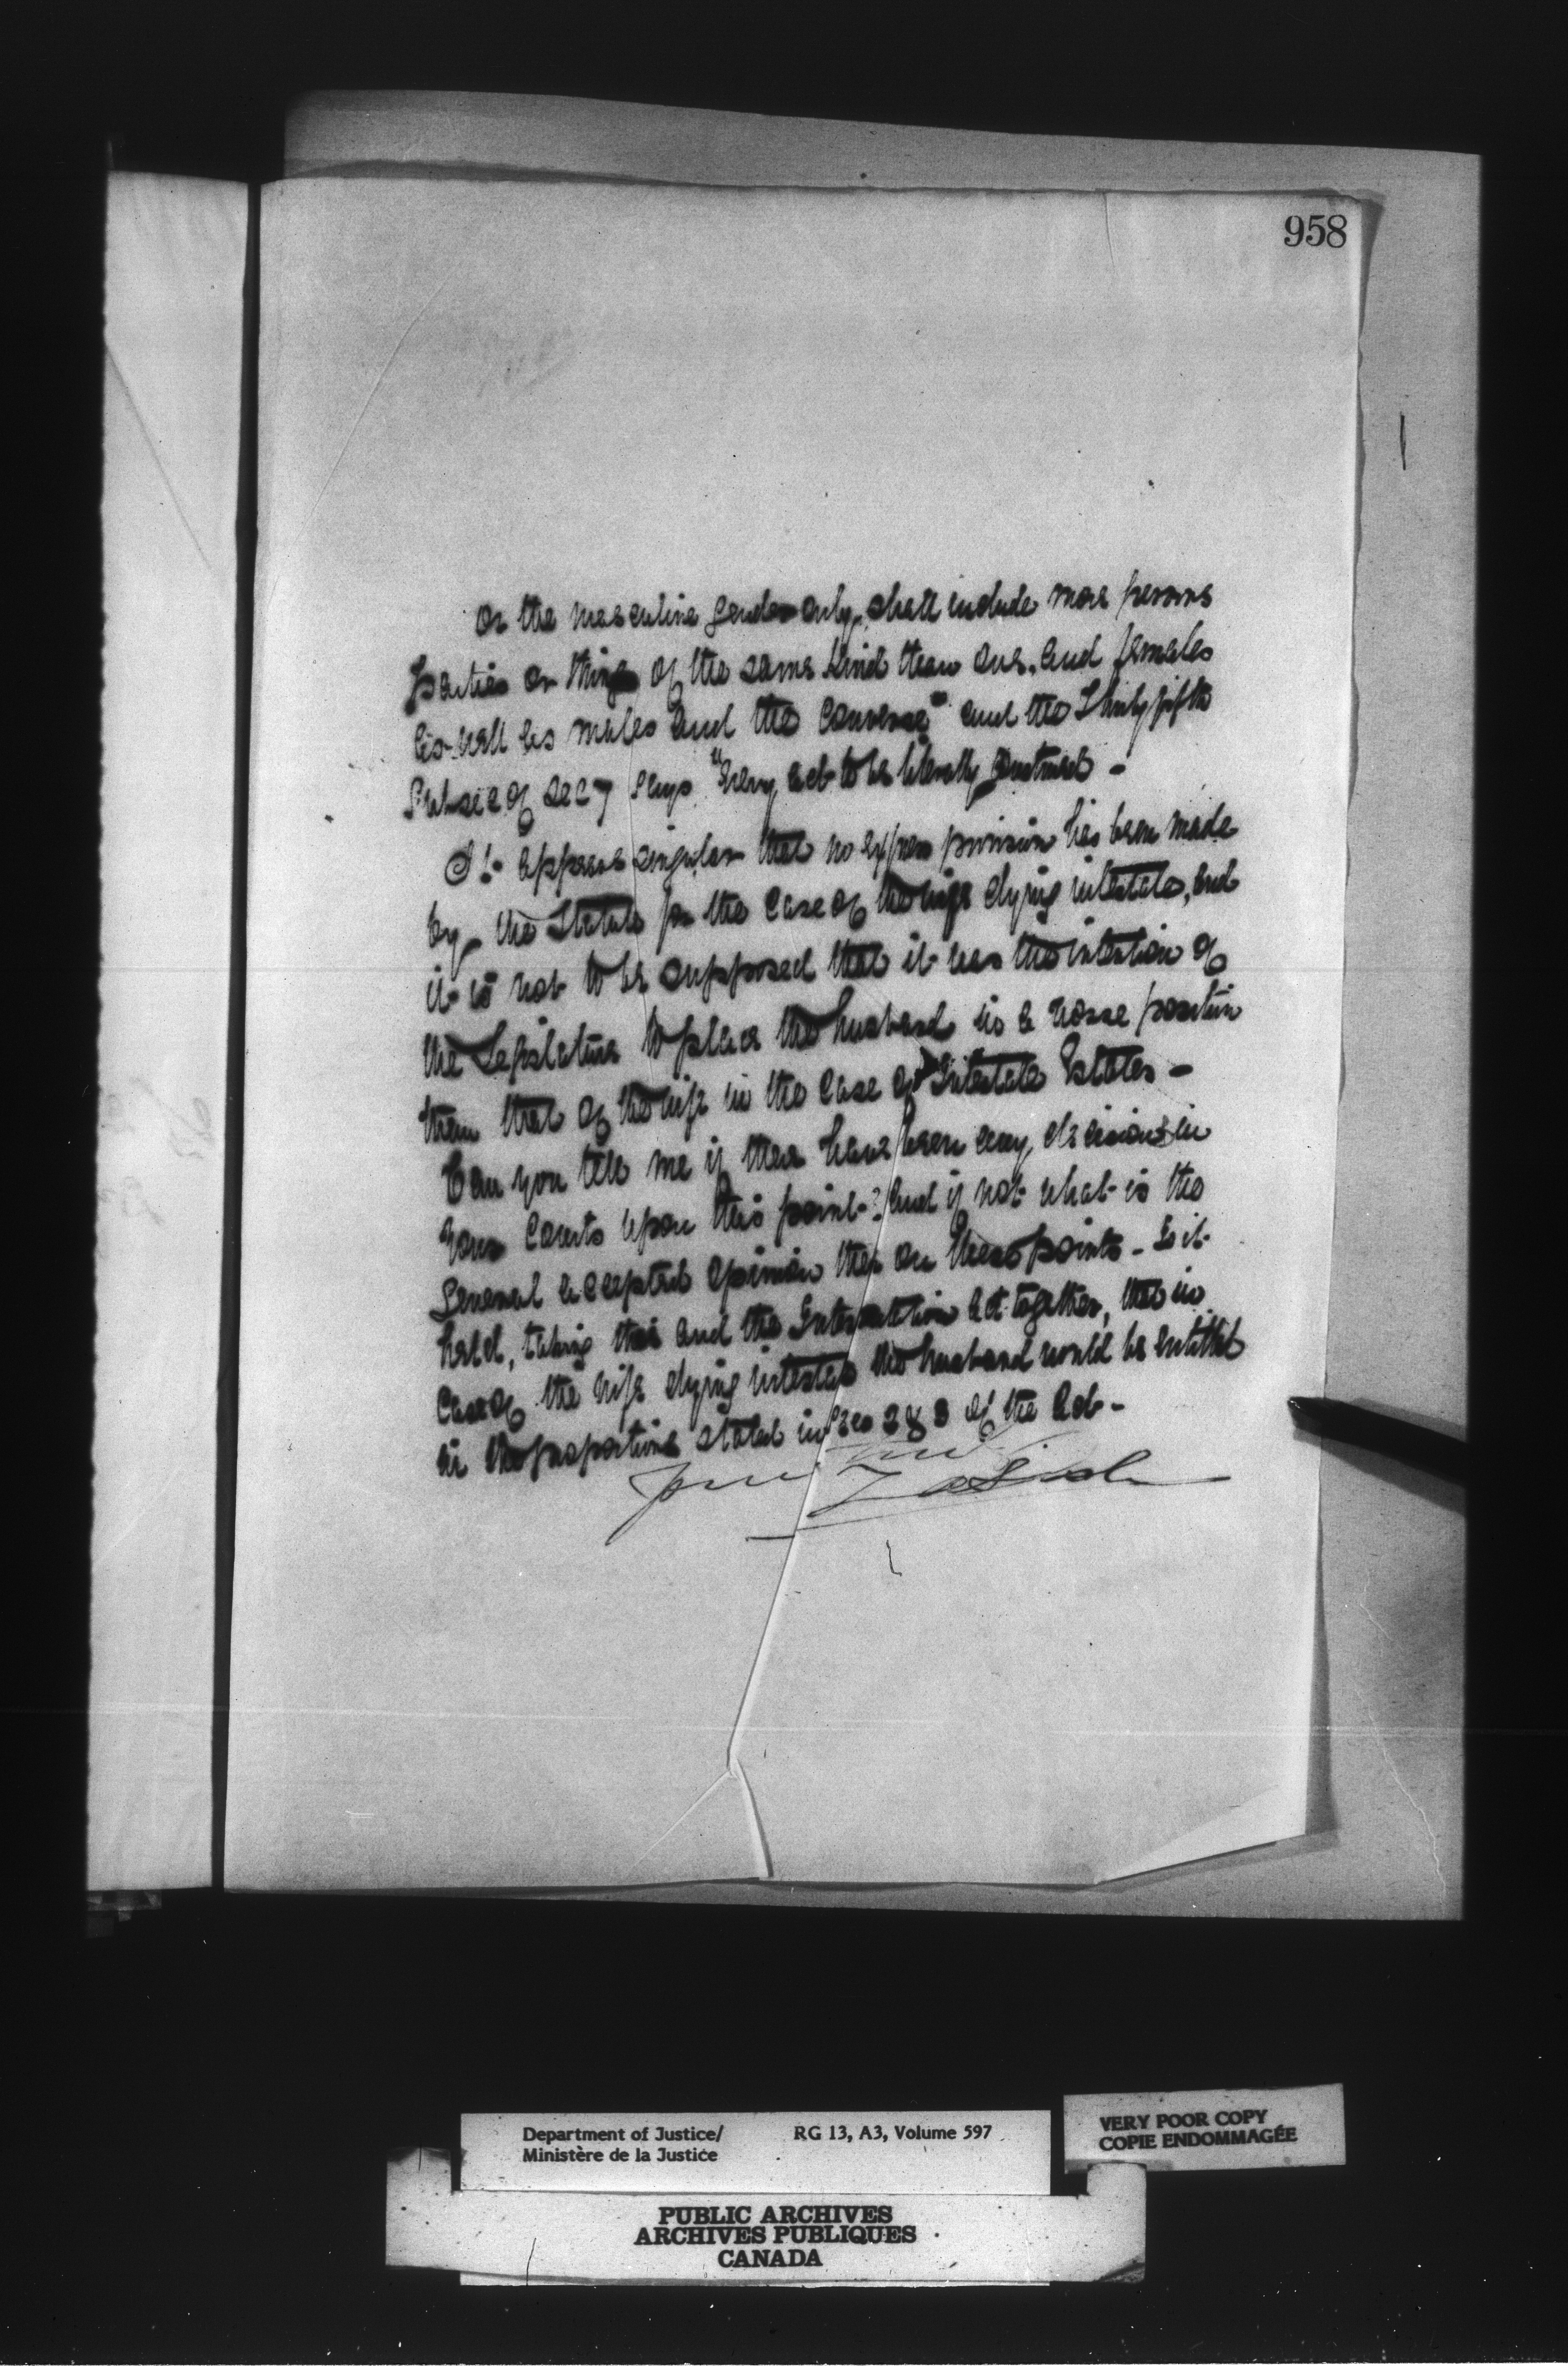 958
or the masculine gender only, shall include more persons
parties or things of the same kind than one, and females
as well as males and the converse" and the Thirty fifth
Subsec of sec 7 says "Every act to be literally construed -
It appears singular that no express provision has been made
by the Statute for the case of the wife dying intestate, and
it is not to be supposed that it was the intention of
the Legislature to place the husband in a worse position
than that of the wife in the case of Intestate Estates -
Can you tell me if there have been any decisions in
your Courts upon this point? And if not what is the
General accepted opinion then on these points - Is it
held, taking this and the Interpretation Act together, that in
case of the wife dying intestate the husband would be entitled
in the proportions stated in Sec 2 & 3 of the Act -
Department of Justice/
Ministère de la Justice
RG 13, A3, Volume 597
VERY POOR COPY
COPIE ENDOMMAGÉE
PUBLIC ARCHIVES
ARCHIVES PUBLIQUES
CANADA